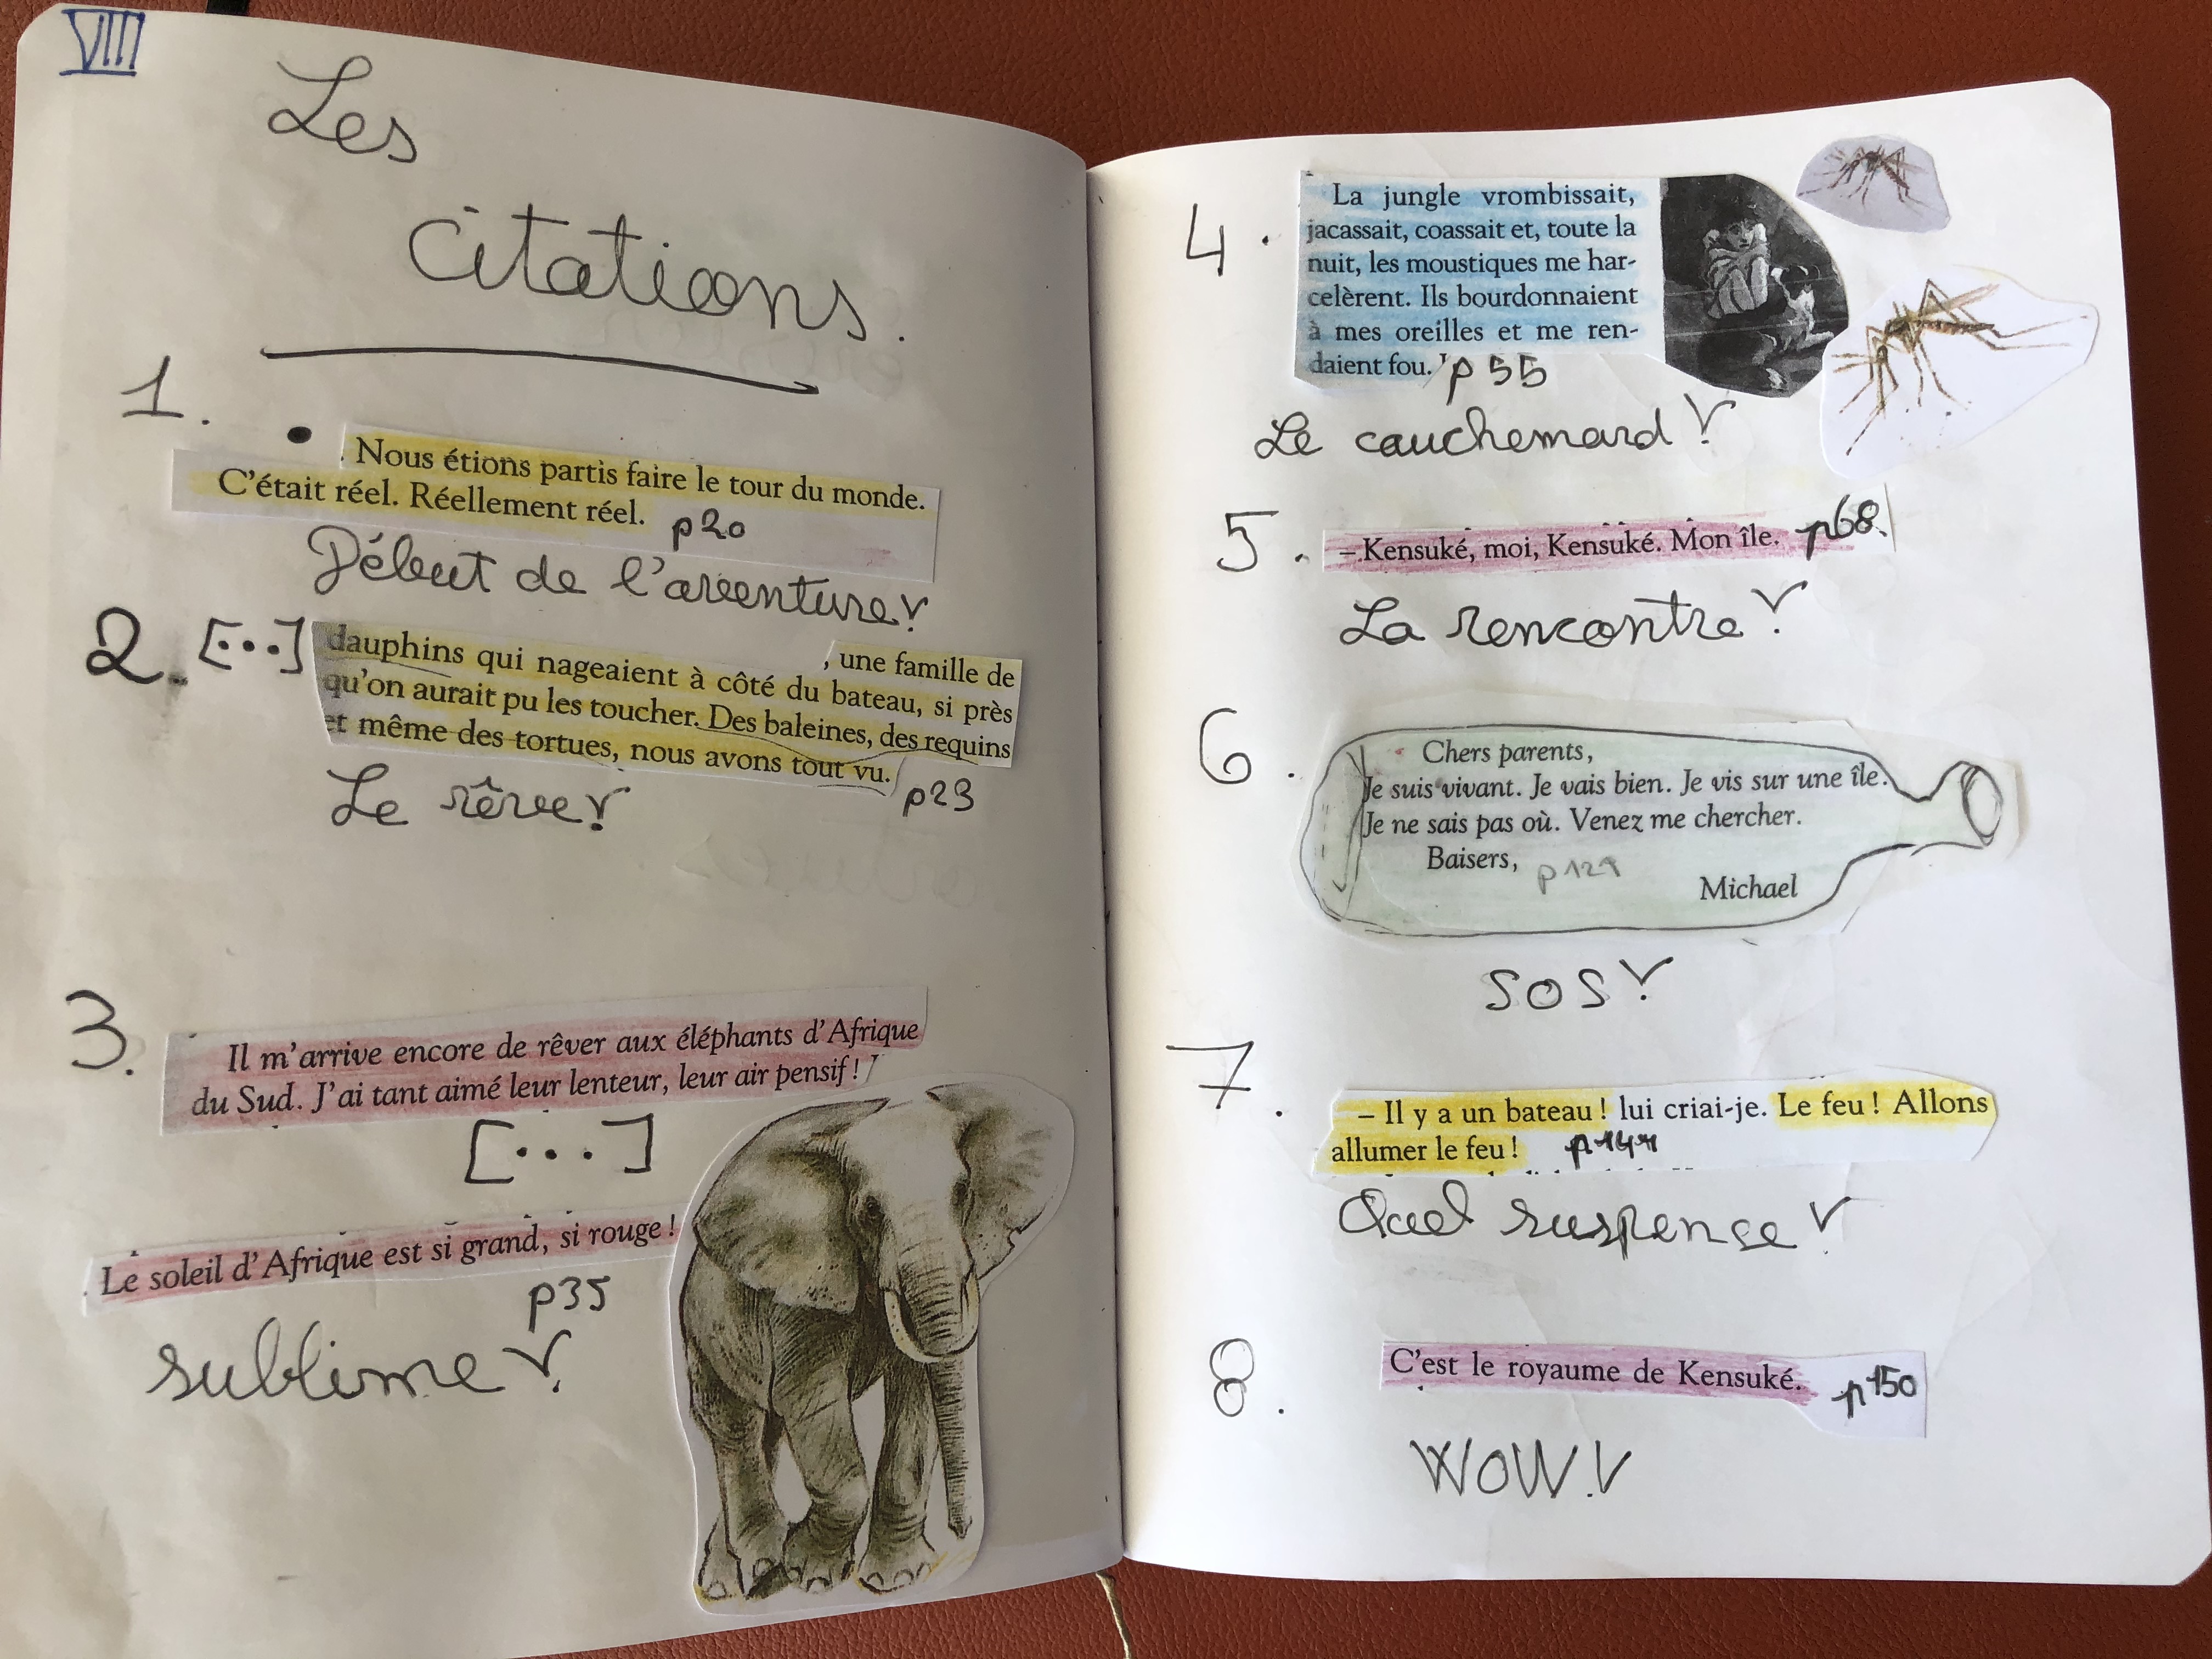 VIII
Les
citations.
1.
. Nous étions partis faire le tour du monde.
C'était réel. Réellement réel.
p20
Début de l'aventure!
2. [...]
, une famille de
dauphins qui nageaient à côté du bateau, si près
qu'on aurait pu les toucher. Des baleines, des requins
et même des tortues, nous avons tout vu.
p23
Le rêve!
3.
Il m'arrive encore de rêver aux éléphants d'Afrique
du Sud. J'ai tant aimé leur lenteur, leur air pensif !
[...]
Le soleil d'Afrique est si grand, si rouge !
p35
sublime!
4.
La jungle vrombissait,
jacassait, coassait et, toute la
nuit, les moustiques me har-
celèrent. Ils bourdonnaient
à mes oreilles et me ren-
daient fou. p55
Le cauchemard!
5. – Kensuké, moi, Kensuké. Mon île. p68.
La rencontre!
6.
Chers parents,
Je suis vivant. Je vais bien. Je vis sur une île.
Je ne sais pas où. Venez me chercher.
Baisers,
Michael
SOS!
7.
– Il y a un bateau ! lui criai-je. Le feu ! Allons
allumer le feu !
Quel suspense!
8.
C'est le royaume de Kensuké. p150
WOW!